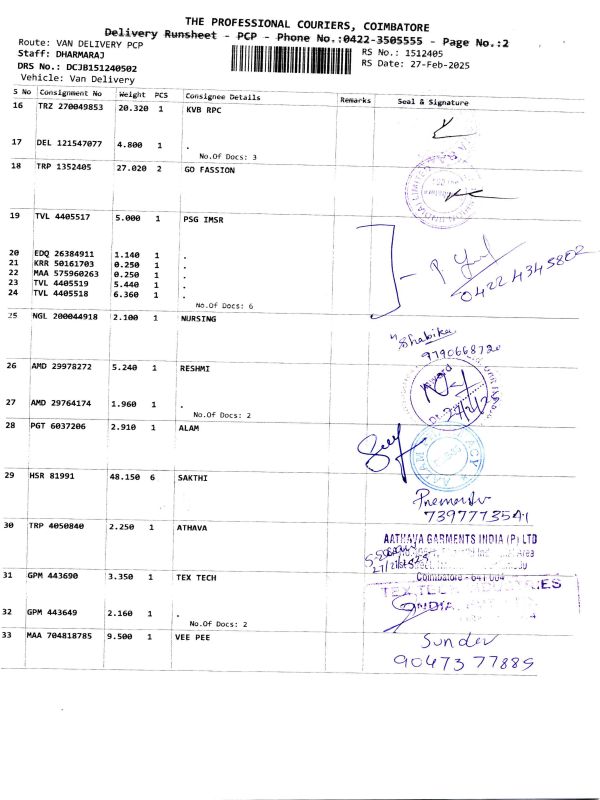 THE PROFESSIONAL COURIERS, COIMBATORE
Delivery Runsheet - PCP - Phone No.:0422-3505555 - Page No.:2
Route: VAN DELIVERY PCP
Staff: DHARMARAJ
DRS No.: DCJB151240502
Vehicle: Van Delivery
RS No.: 1512405
RS Date: 27-Feb-2025
S No Consignment No Weight PCS Consignee Details Remarks Seal & Signature
16 TRZ 270049853 20.320 1 KVB RPC
17 DEL 121547077 4.800 1 .
No.Of Docs: 3
18 TRP 1352405 27.020 2 GO FASSION
19 TVL 4405517 5.000 1 PSG IMSR
20 EDQ 26384911 1.140 1 .
21 KRR 50161703 0.250 1 .
22 MAA 575960263 0.250 1 .
23 TVL 4405519 5.440 1 .
24 TVL 4405518 6.360 1 .
0422 4345802
No.Of Docs: 6
25 NGL 200044918 2.100 1 NURSING
Shabika
9790668720
26 AMD 29978272 5.240 1 RESHMI
27 AMD 29764174 1.960 1 .
No.Of Docs: 2
28 PGT 6037206 2.910 1 ALAM
29 HSR 81991 48.150 6 SAKTHI
7397773541
30 TRP 4050840 2.250 1 ATHAVA
AATHAVA GARMENTS INDIA (P) LTD
Coimbatore - 641 004
31 GPM 443690 3.350 1 TEX TECH
INDIA
32 GPM 443649 2.160 1 .
No.Of Docs: 2
33 MAA 704818785 9.500 1 VEE PEE
Sunder
90473 77889